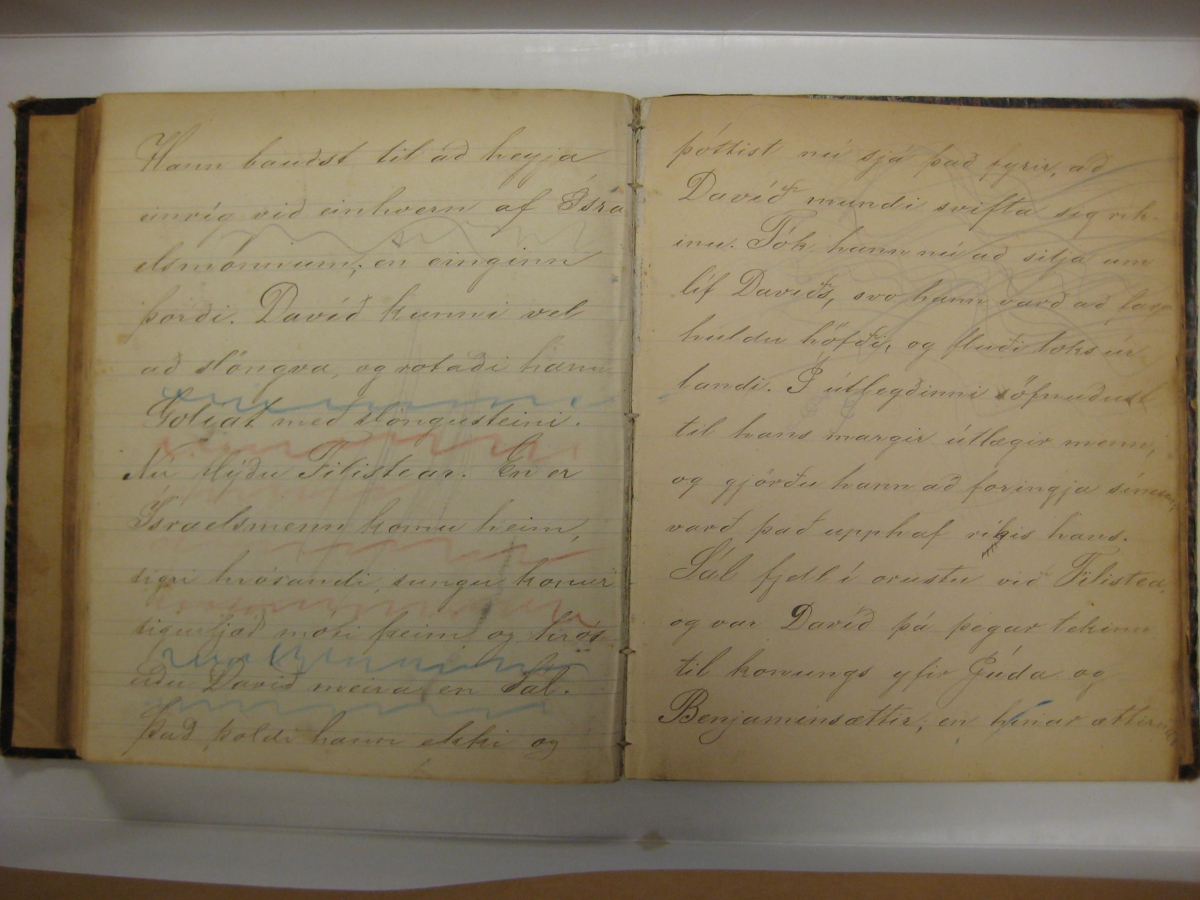 Hann bauðst til að heyja
einvíg við einhvern af Ísra
elsmönnum, en einginn
þorði. Davíð kunni vel
að slöngva, og rotaði hann
Golíat með slöngusteini.
Nú flýðu Filistear. En er
Ísraelsmenn komu heim,
sigri hrósandi, sungu konur
sigurljóð móti þeim og hrós
uðu Davíð meira en Sál.
Það þoldi hann ekki og
þóttist nú sjá það fyrir, að
Davíð mundi svifta sig rík-
inu. Tók hann nú að sitja um
líf Davíðs, svo hann varð að fara
huldu höfði, og flúði loks úr
landi. Í útlegðinni söfnuðust
til hans margir útlægir menn,
og gjörðu hann að foringja sínum,
varð það upphaf ríkis hans.
Sál fjell í orustu við Filistea,
og var Davíð þá þegar tekinn
til konungs yfir Júda og
Benjamínsættir, en hinar ættirnar